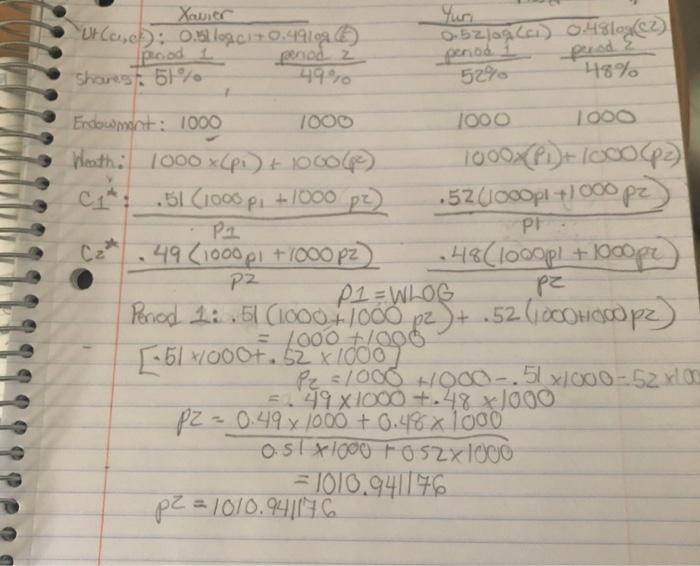 Xavier Yuri
Ut(c1,c2): 0.51logc1+0.49log(2) 0.52log(c1) 0.48log(c2)
period 1 period 2 period 1 period 2
Shares: 51% 49% 52% 48%
Endowment: 1000 1000 1000 1000
Wealth: 1000x(p1)+1000(p2) 1000x(p1)+1000(p2)
C1*: .51(1000p1+1000 p2) .52(1000p1+1000p2)
P1 p1
C2* .49(1000p1+1000p2) .48(1000p1+1000p2)
p2 p2
p1=WLOG
Period 1: .51(1000+1000 p2)+ .52(1000+1000p2)
= 1000+1000
[.51x1000+.52x1000]
P2=1000+1000-.51x1000-.52x100
= .49x1000+.48x1000
p2= 0.49x1000+0.48x1000
0.51x1000+052x1000
=1010.941176
p2=1010.941176